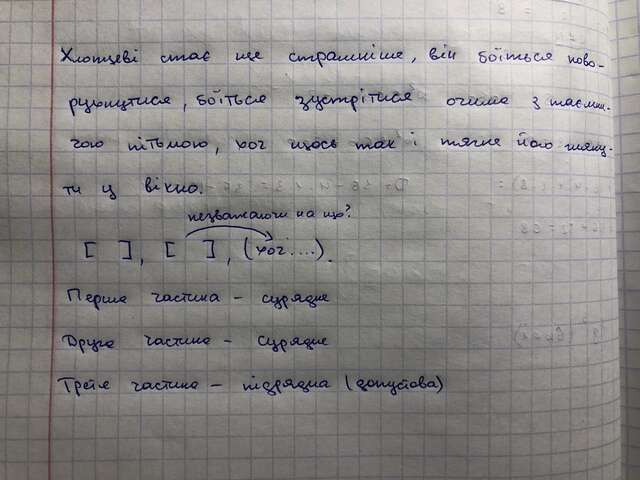 Хлопцеві стає ще страшніше, він боїться пово-
рухнутися, боїться зустрітися очима з таємни-
чою пітьмою, хоч щось так і тягне його гляну-
ти у вікно.
незважаючи на що?
[ ], [ ], (хоч....).
Перша частина – сурядне
Друга частина – сурядне
Третя частина – підрядна (допустова)